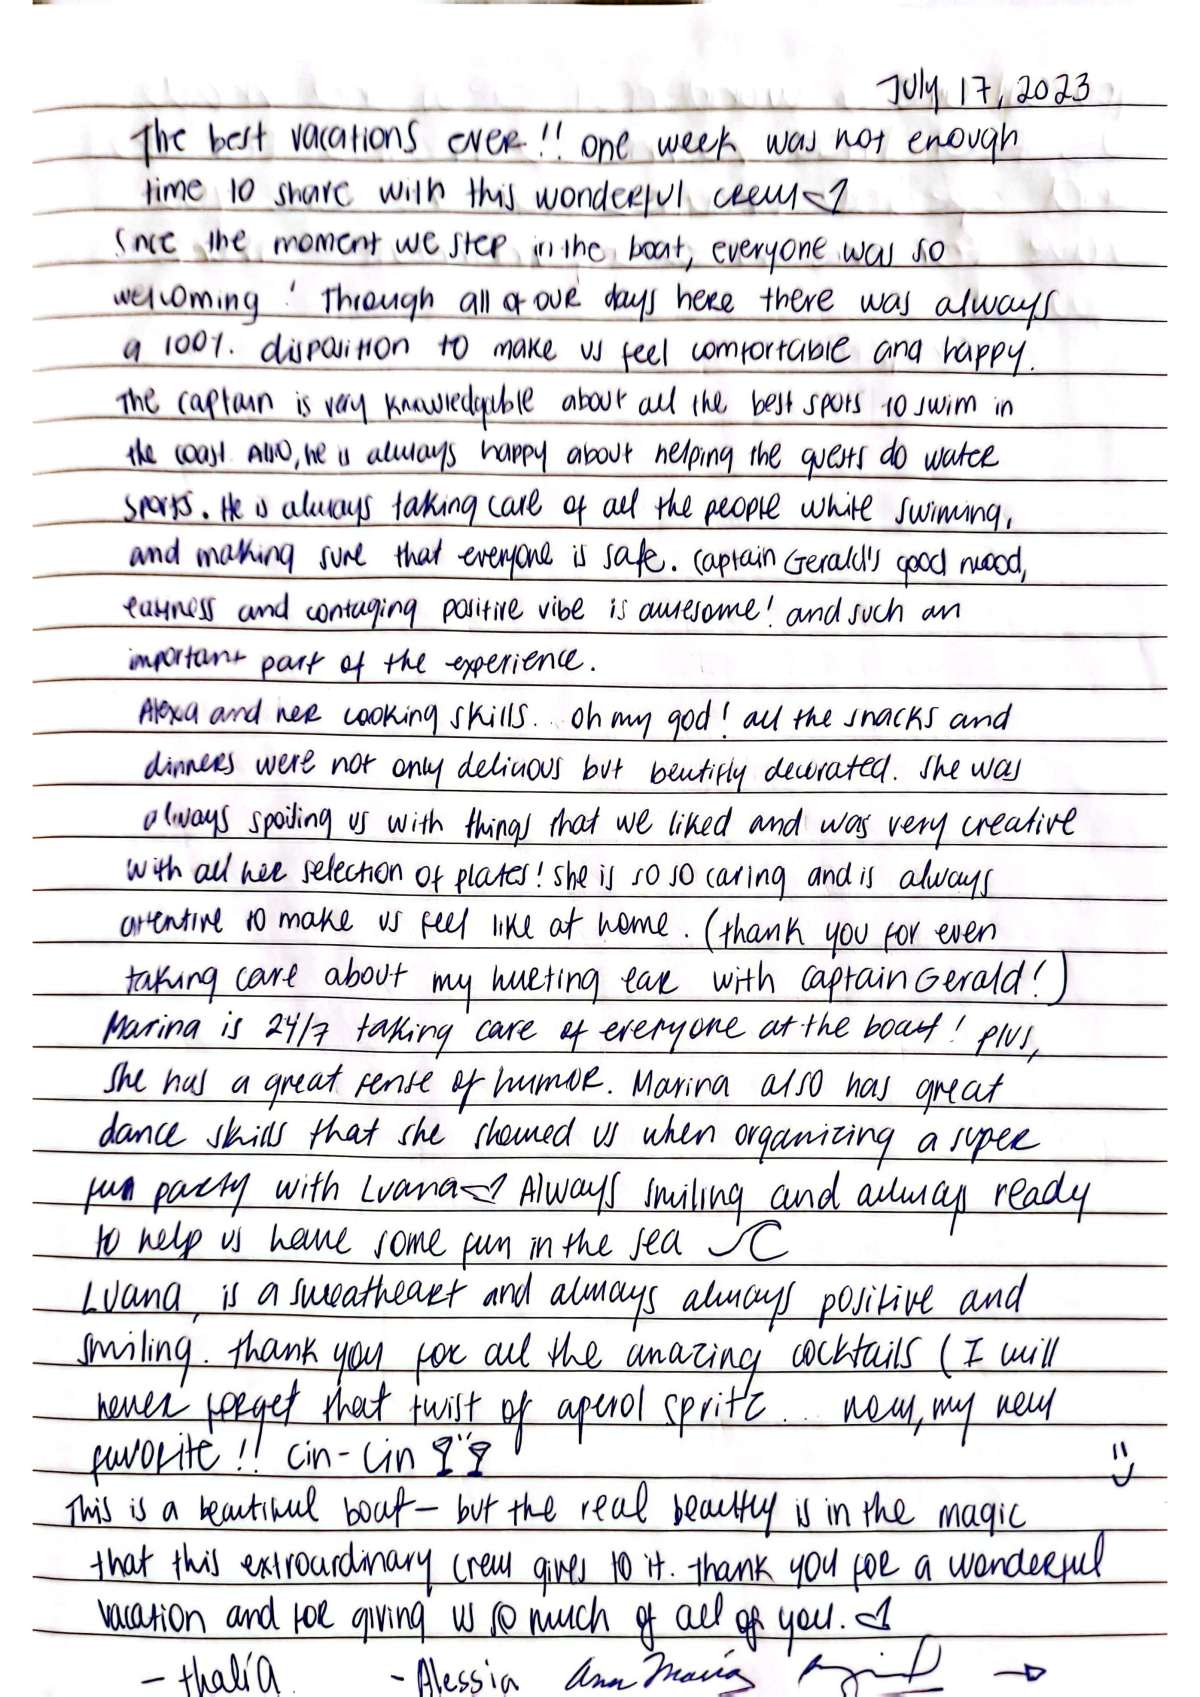 July 17, 2023
The best vacations ever!! one week was not enough
time to share with this wonderful crew <3
Since the moment we step in the boat, everyone was so
welcoming! Through all of our days here there was always
a 100% disposition to make us feel comfortable and happy.
The captain is very knowledgable about all the best spots to swim in
the coast. Also, he is always happy about helping the guests do water
sports. He is always taking care of all the people while swiming,
and making sure that everyone is safe. Captain Gerald's good mood,
easyness and contaging positive vibe is awesome! and such an
important part of the experience.
Alexa and her cooking skills... oh my god! all the snacks and
dinners were not only delicious but beutifly decorated. She was
always spoiling us with things that we liked and was very creative
with all her selection of plates! She is so so caring and is always
attentive to make us feel like at home. (thank you for even
taking care about my hurting ear with Captain Gerald!)
Marina is 24/7 taking care of everyone at the boat! plus,
she has a great sense of humor. Marina also has great
dance skills that she showed us when organizing a super
fun party with Luana <3 Always smiling and always ready
to help us have some fun in the sea
Luana, is a sweatheart and always always positive and
smiling. thank you for all the amazing cocktails (I will
never forget that twist of aperol spritz... now, my new
favorite!! Cin-Cin
This is a beautiful boat - but the real beautty is in the magic
that this extraordinary crew gives to it. thank you for a wonderful
vacation and for giving us so much of all of you. <3
- thalía - Alessia Ana María